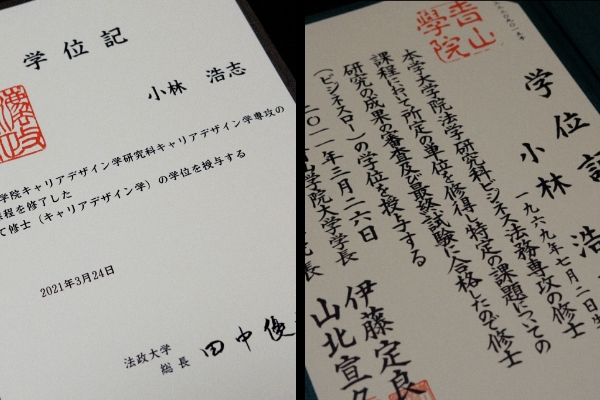 学位記
小林 浩志
学院キャリアデザイン学研究科キャリアデザイン学専攻の
課程を修了した
て修士（キャリアデザイン学）の学位を授与する
2021年3月24日
法政大学
総長 田中優
青山
學院
学位記
小林 浩
一九六九年七月二日生
本学大学院法学研究科ビジネス法務専攻の修士
課程において所定の単位を修得し特定の課題についての
研究の成果の審査及び最終試験に合格したので修士
（ビジネスロー）の学位を授与する
二〇二一年三月二六日
山学院大学学長 伊藤定良
院長 山北宣久